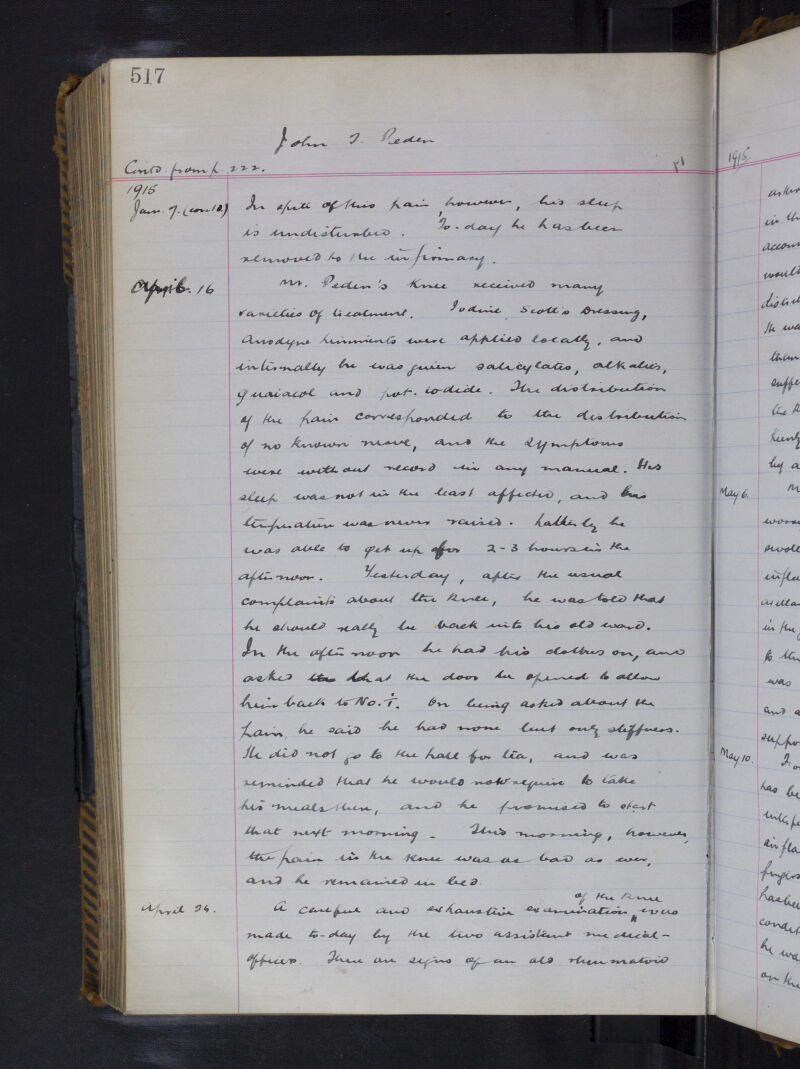 517
John T. Peden
Contd from p 222.
1915
Jan. 7. (contd)
In spite of this pain, however, his sleep
is undisturbed. To-day he has been
removed to the infirmary.
April. 16
Mr. Peden's knee received many
varieties of treatment. Iodine, Scott's Dressing,
Anodyne liniments were applied locally, and
internally he was given salicylates, alkalies,
guaiacol and pot. iodide. The distribution
of the pain corresponded to the distribution
of no known nerve, and the symptoms
were without record in any manual. His
sleep was not in the least affected, and his
temperature was never raised. Latterly he
was able to get up for 2-3 hours in the
afternoon. Yesterday, after the usual
complaints about the knee, he was told that
he should really be back into his old ward.
In the afternoon he had his clothes on, and
asked that the door be opened to allow
him back to No. 1. On being asked about the
pain, he said he had none but only stiffness.
He did not go to the hall for tea, and was
reminded that he would now require to take
his meals there, and he promised to start
that next morning. This morning, however,
the pain in the knee was as bad as ever,
and he remained in bed.
April 24.
A careful and exhaustive examination of the knee was
made to-day by the two assistant medical-
officers. There are signs of an old rheumatoid
1915
in the
accoun
would
He wa
than
suffe
by a
May 6.
M
worse
swoll
infla
in the
to the
was
and a
suppo
May 10.
has be
fingers
has bee
condit
he wa
on the